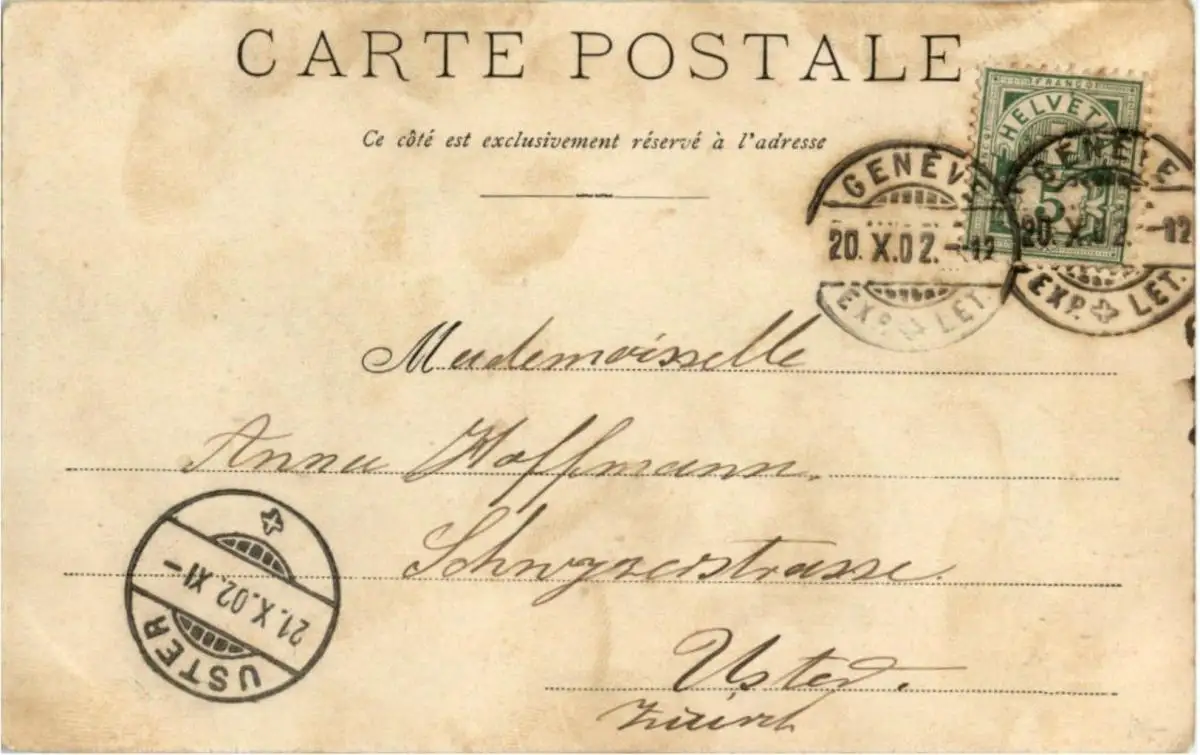 CARTE POSTALE
Ce côté est exclusivement réservé à l'adresse
FRANCO
HELVETIA
5
GENÈVE
20. X. 02. - 12
EXP. LET.
GENÈVE
20. X. 02. - 12
EXP. LET.
Mademoiselle
Anna Hoffmann.
Schwyzerstrasse.
Uster.
Zürich
USTER
21. X. 02 XI -